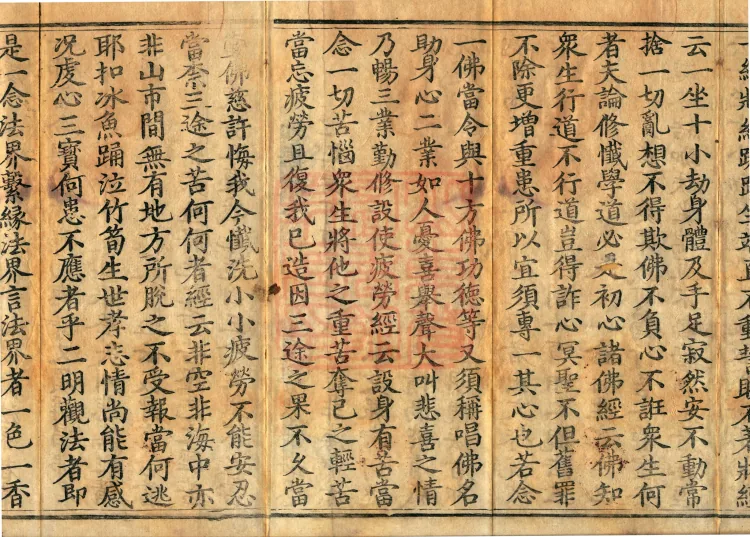 云一坐十小劫身體及手足寂然安不動常
捨一切亂想不得欺佛不負心不誑衆生何
者夫論修懺學道必初心諸佛經云佛知
衆生行道不行道豈得詐心冥聖不但舊罪
不除更增重患所以宜須專一其心也若念
一佛當令與十方佛功德等又須稱唱佛名
助身心二業如人憂喜舉聲大叫悲喜之情
乃暢三業勤修設使疲勞經云設身有苦當
念一切苦惱衆生將他之重苦奪己之輕苦
當忘疲勞且復我已造因三途之果不久當
佛慈許悔我今懺洗小小疲勞不能安忍
當柰三途之苦何何者經云非空非海中亦
非山市間無有地方所脫之不受報當何逃
耶扣冰魚踊泣竹筍生世孝志情尚能有感
况虔心三寶何患不應者乎二明觀法者即
是一念法界繫緣法界言法界者一色一香